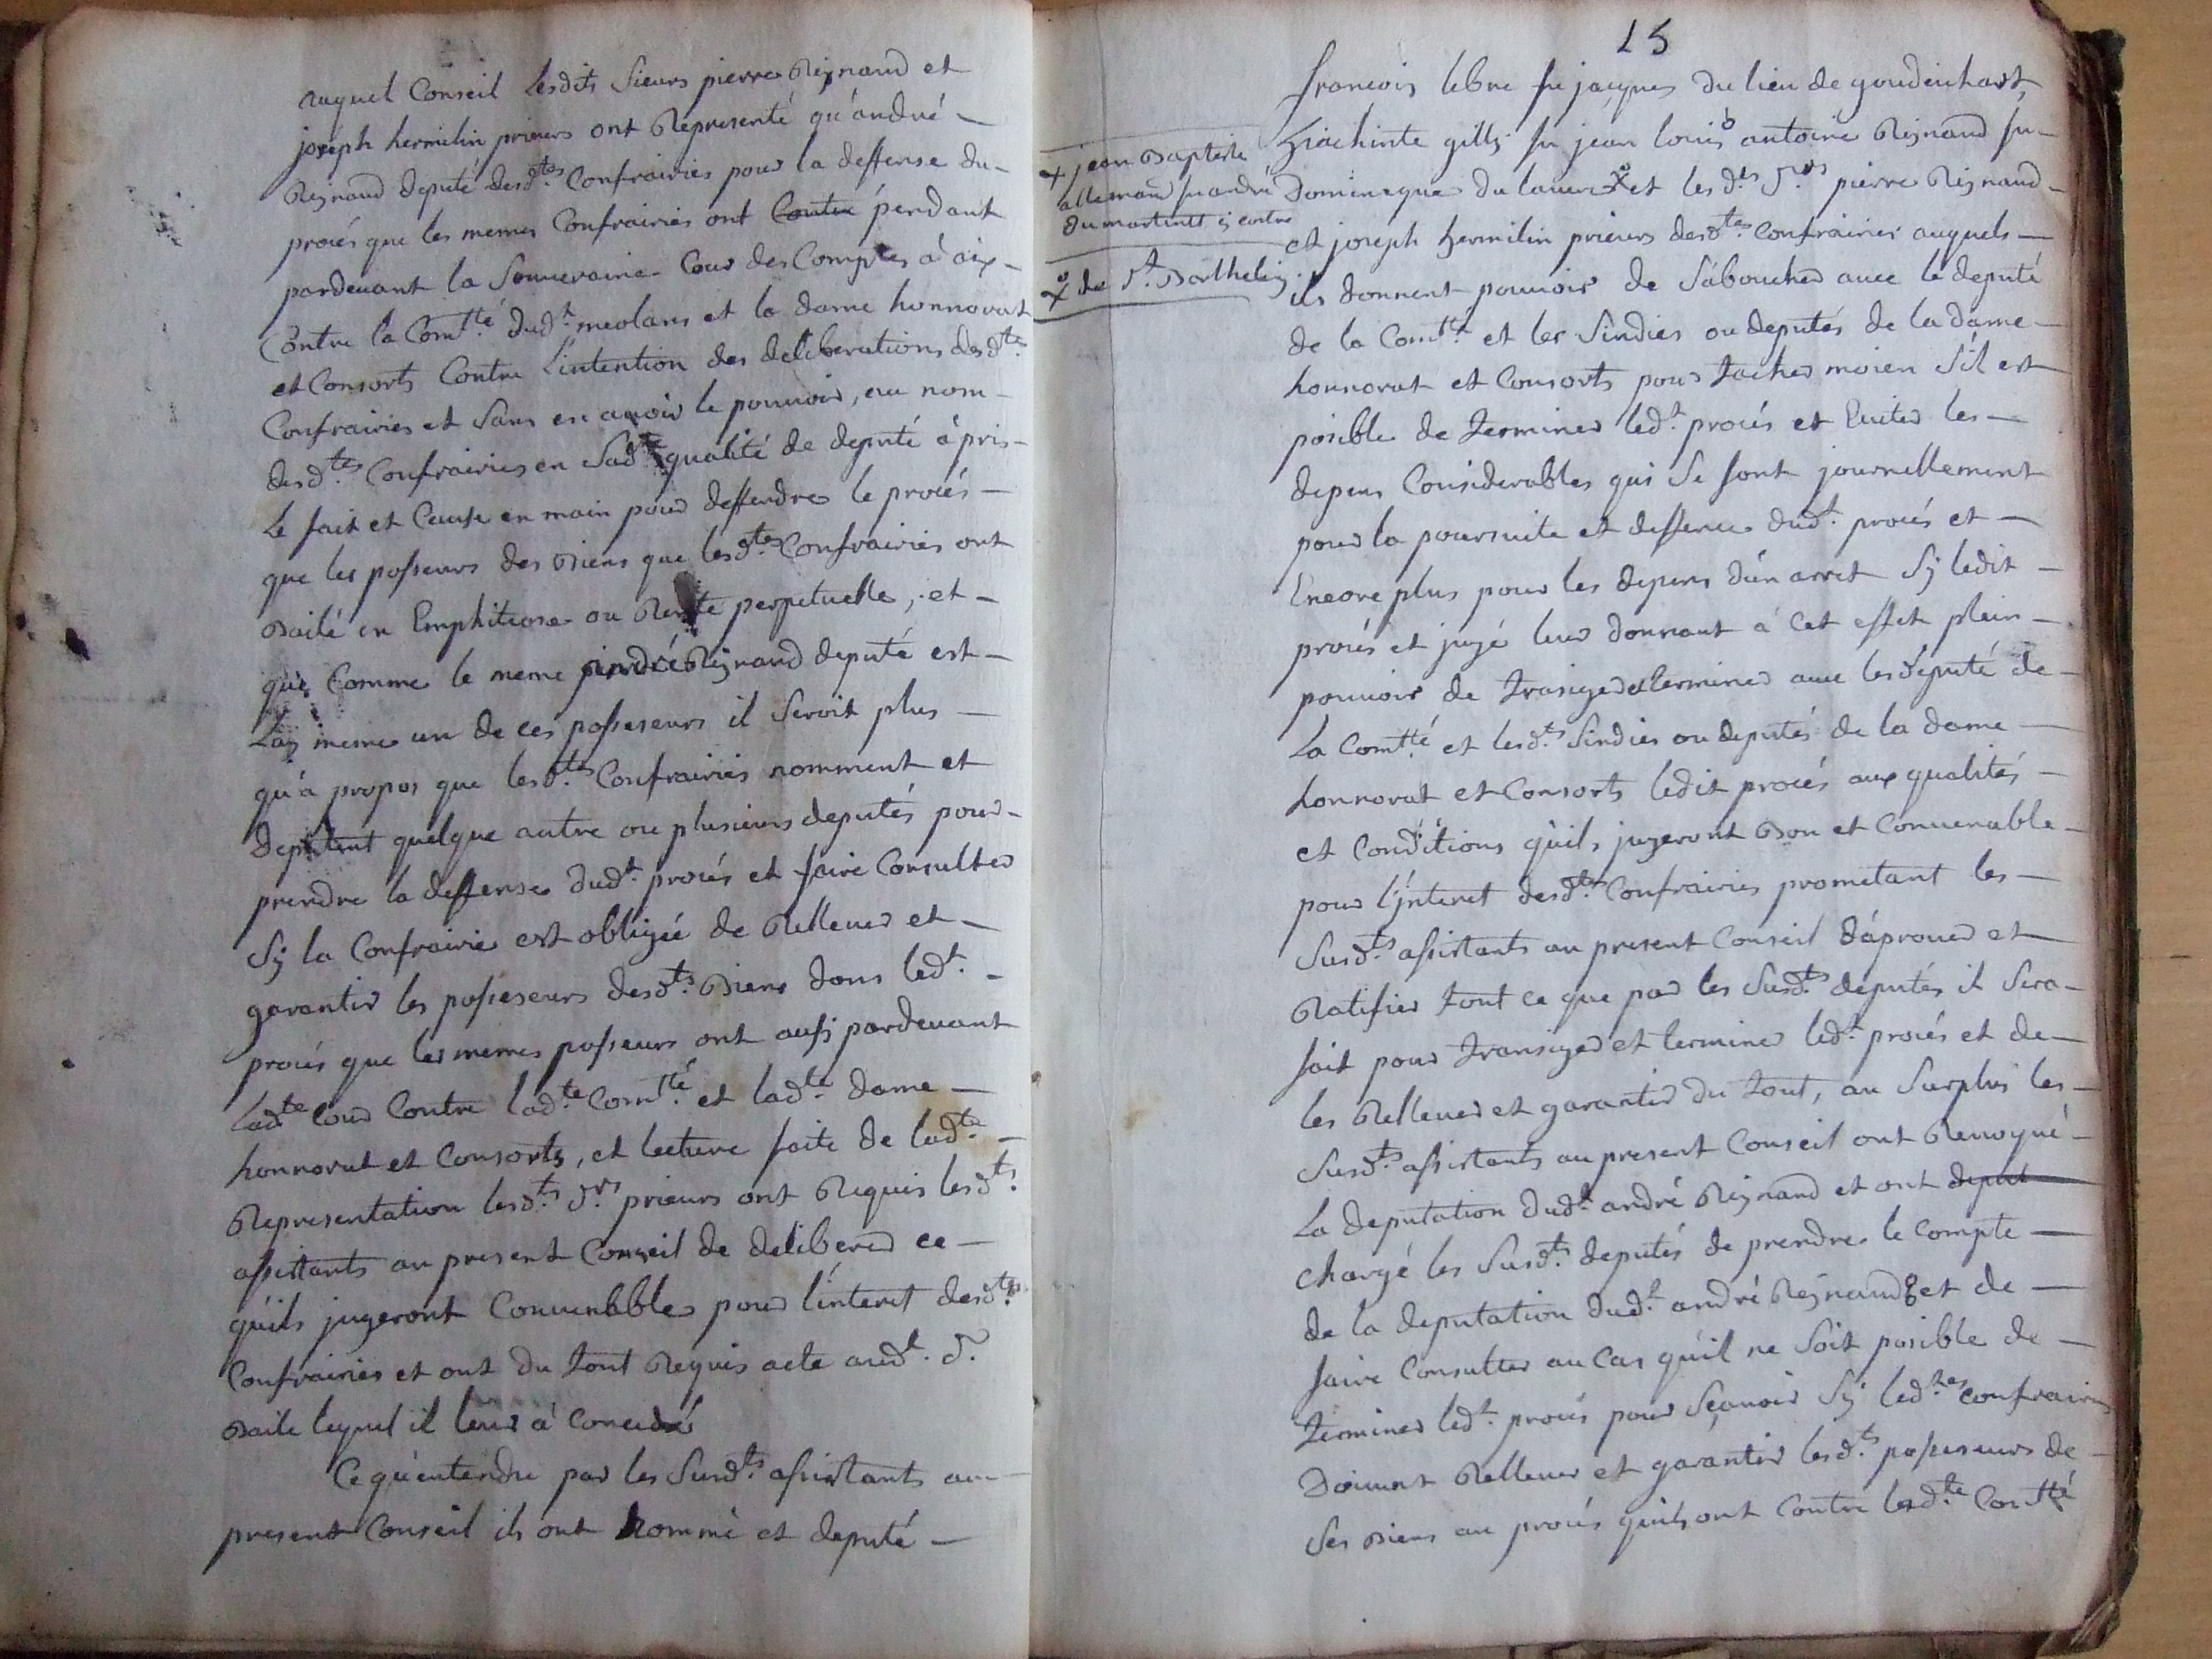 auquel Conseil Lesdits Sieurs pierre Reynaud et
joseph hermelin prieurs ont Representé qu'andré
Reynaud deputé desd.tes Confrairies pour la deffense du
procés que les memes Confrairies ont Contre pendant
pardevant la Souveraine Cour des Comptes a aix
Contre la Com.té dud.t meolans et la dame honnorat
et Consorts Contre L'intention des deliberations desd.tes
Confrairies et Sans en avoir le pouvoir, au nom
desd.tes Confrairies en Sad.te qualité de deputé à pris
Le fait et Cause en main pour deffendre le procés
que les posseurs des Biens que lesd.tes Confrairies ont
Bailé en Emphiteose ou Rente perpetuelle, et
que Comme le meme andré Reynaud deputé est
Luy meme un de ces posseseurs il Seroit plus
qu'a propos que lesd.tes Confrairies nomment et
deputent quelque autre ou plusieurs deputés pour
prendre la deffense dud.t procés et faire Consulter
Sy la Confrairie est obligée de Rellever et
garantir les posseseurs desd.ts Biens dans led.t
procés que les memes posseurs ont aussy pardevant
Lad.te Cour Contre lad.te Com.té et lad.te dame
honnorat et Consorts, et lecture faite de lad.te
Representation lesd.ts S.rs prieurs ont Requis lesd.ts
assistants au present Conseil de deliberer ce
qu'ils jugeront Convenabble pour l'interet desd.tes
Confrairies et ont du tout Requis acte aud.t S.
Baile lequel il leur à Concedé
Ce qu'entendu par les Susd.ts assistants au
present Conseil ils ont Nommé et deputé
15
francois lebre fu jacques du lieu de goudeichart,
hiachinte gilly fu jean louis antoine Reynaud fu
Domineque du laver et les d.ts S.rs pierre Reynaud
et joseph hermelin prieurs desd.tes Confrairies auquels
ils donnent pouvoir de S'aboucher avec le deputé
de la Com.té et les Sindics ou deputés de la dame
honnorat et Consorts pour tacher moien S'il est
posible de terminer led.t procés et Eviter les
depens Considerables qui Se font journellement
pour la poursuite et deffence dud.t procés et
Encore plus pour les depens d'un arret Sy ledit
procés et jugé leur donnant à Cet effet plein
pouvoir de transiger et terminer avec les deputé de
La Com.té et lesd.ts Sindics ou deputés de la dame
honnorat et Consorts ledit procés aux qualités
et Conditions qu'ils jugeront Bon et Convenable
pour l'interet desd.tes Confrairies prometant les
Susd.ts assistants au present Conseil d'aprouver et
Ratifier tout ce que par les Susd.ts deputés il Sera
fait pour transiger et terminer led.t procés et de
les Rellever et garantir du tout, au Surplus les
Susd.ts assistants au present Conseil ont Revoqué
La deputation dud.t andré Reynaud et ont deput
chargé les Susd.ts deputés de prendre le Compte
de la deputation dud.t andré Reynaud et de
faire Consulter au Cas qu'il ne Soit posible de
terminer led.t procés pour Sçavoir Sy led.tes confrairies
Doivent Rellever et garantir lesd.ts posseseurs de
Ses Biens au procés qu'ils ont Contre lad.te Com.té
x jean Baptiste
allemand fu andré
du martinet
x de S.t Barthelemy